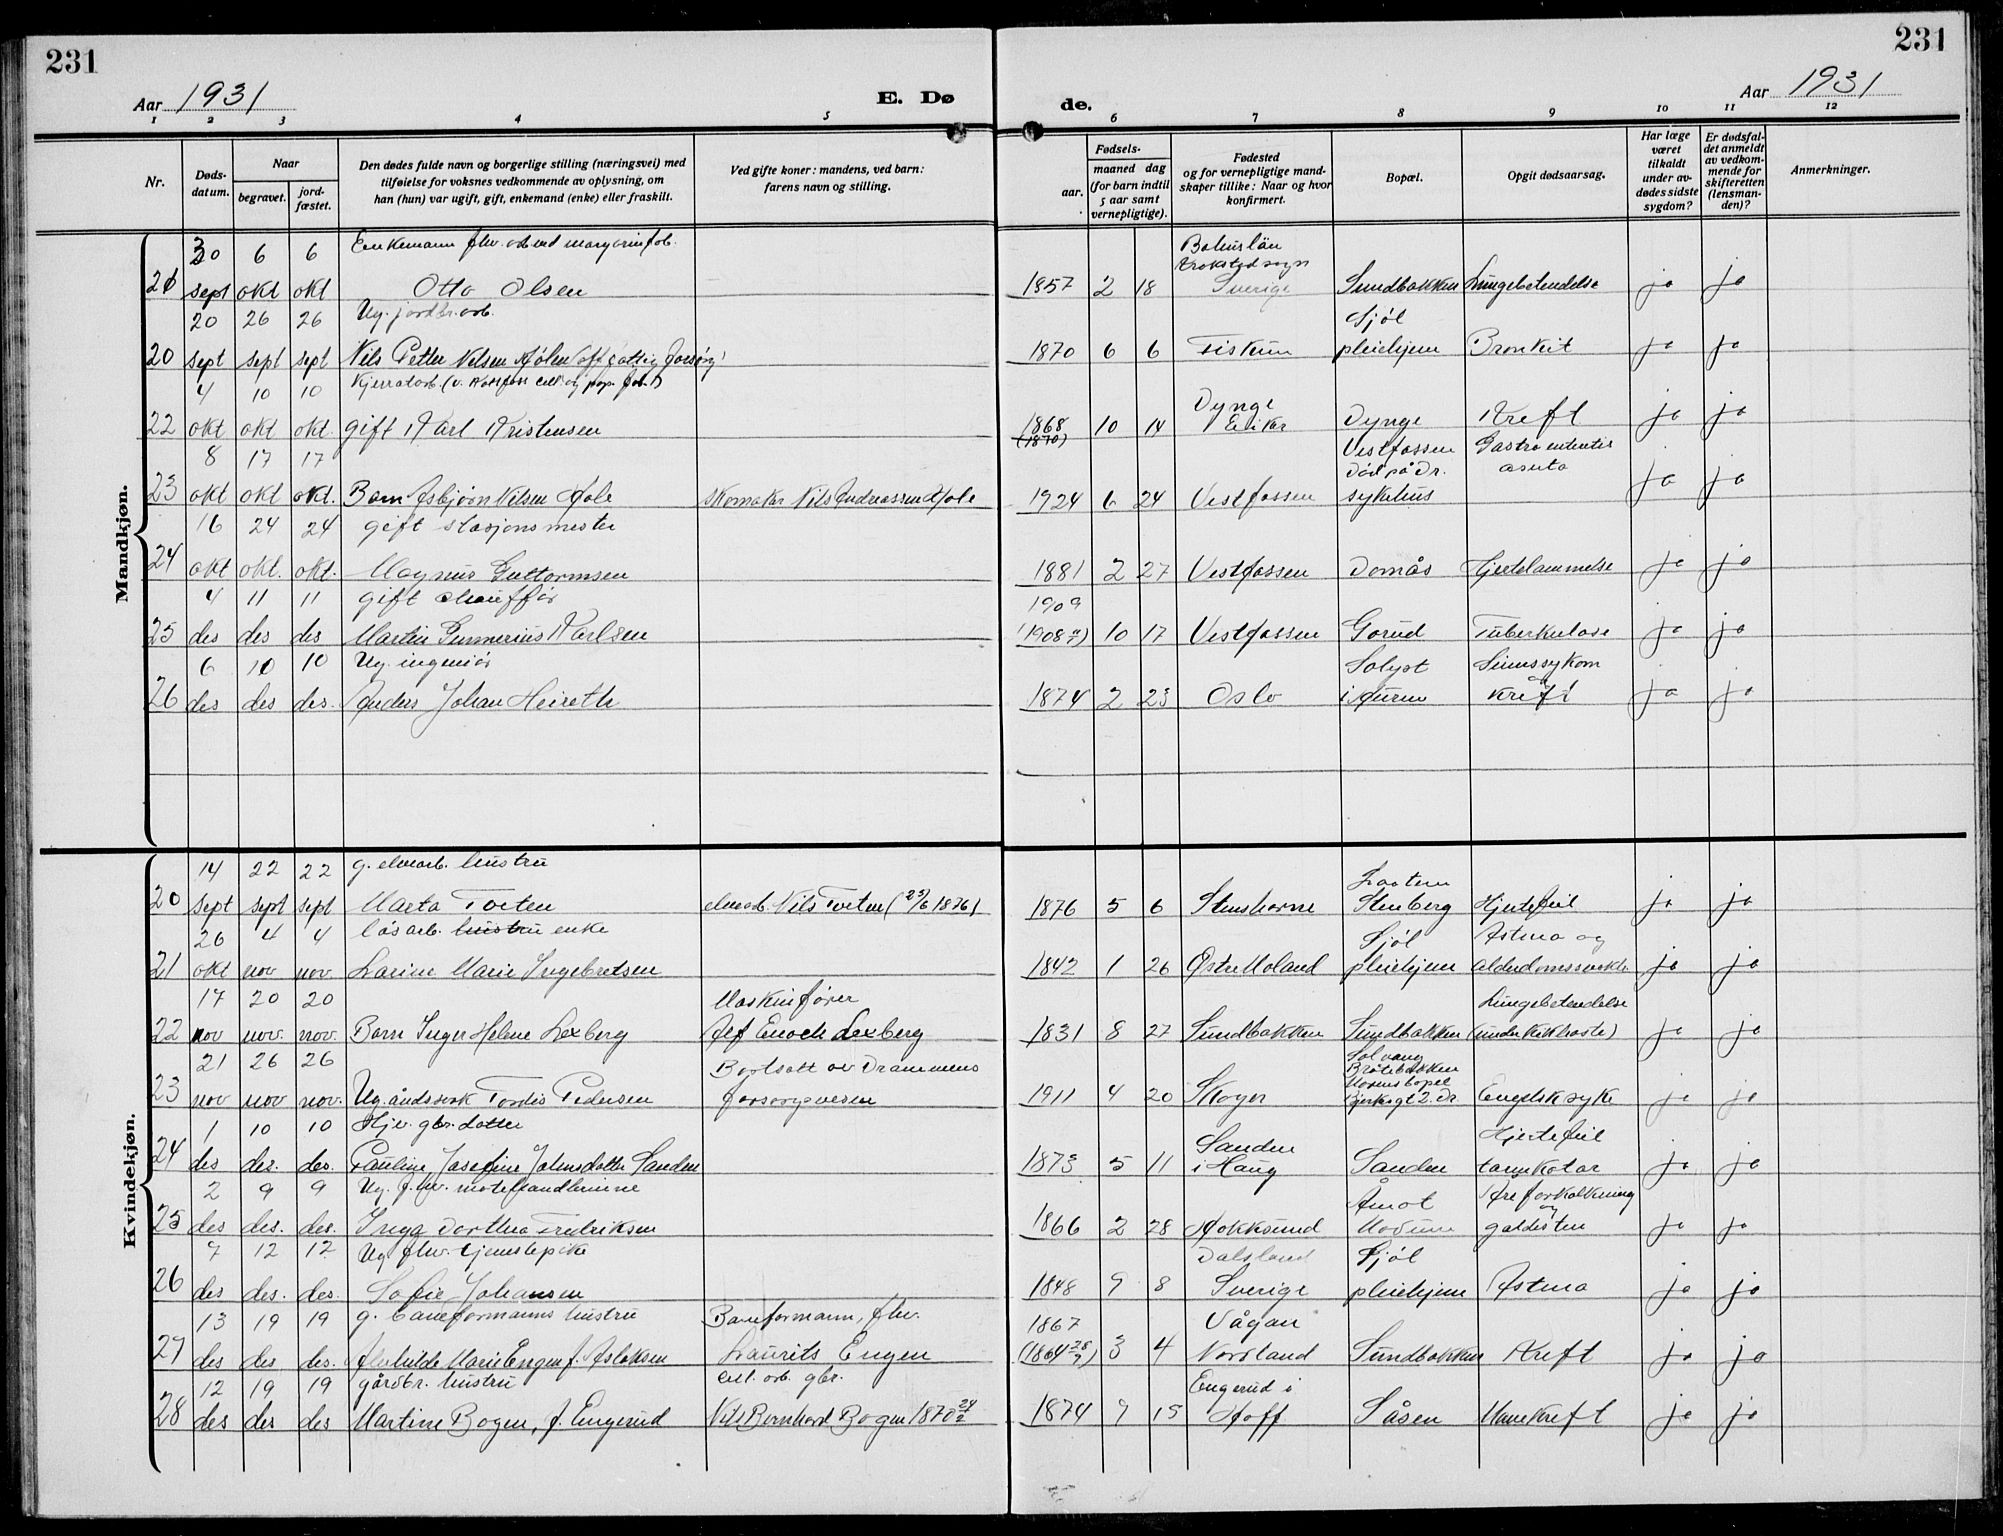 231
231
Aar 1931
E. Dø
de.
Aar 1931
1 2 3 4 5 6 7 8 9 10 11 12
Nr.
Døds-
datum.
Naar
begravet.
jord-
fæstet.
Den dødes fulde navn og borgerlige stilling (næringsvei) med
tilføielse for voksnes vedkommende av oplysning, om
han (hun) var ugift, gift, enkemand (enke) eller fraskilt.
Ved gifte koner: mandens, ved barn:
farens navn og stilling.
Fødsels-
aar.
maaned dag
(for barn indtil
5 aar samt
vernepligtige).
Fødested
og for vernepligtige mand-
skaper tillike: Naar og hvor
konfirmert.
Bopæl.
Opgit dødsaarsag.
Har læge
været
tilkaldt
under av-
dødes sidste
sygdom?
Er dødsfal-
det anmeldt
av vedkom-
mende for
skifteretten
(lensman-
den)?
Anmerkninger.
Mandkjøn.
30 6 6 Enkemann fhv. arb. ved margarinfab. Bohuslän
sogn
21 sept okt okt Otto Olsen 1857 2 18 Sverige Sundbakken Lungebetendelse ja ja
20 26 26 Ug. jordbr.arb. Sjöl
20 sept sept sept Nils Petter Nilsen 1870 6 6 Fiskum pleiehjem Bronkit ja ja
4 10 10 Dynge
22 okt okt okt. gift Karl Kristensen 1868 (1870) 10 14 Eiker Dynge Kreft ja ja
8 17 17 Vestfossen Gastro
død på Dr.
23 okt okt okt. Barn Asbjørn Nilsen Hole skomaker Nils Andreassen Hole 1924 6 24 Vestfossen sykehus ja ja
16 24 24 gift stasjonsmester
24 okt okt. okt. Magnus Guttormsen 1881 2 27 Vestfossen Domås Hjertelammelse ja ja
4 11 11 gift chauffør 1909
25 des des des Martin Gunnerius Karlsen (1908?) 10 17 Vestfossen Gorud Tuberkulose ja ja
6 10 10 Ug. ingeniør Solyst Sinnssykom
og
26 des des des. Anders Johan Heireth 1874 2 23 Oslo i Hurum kreft ja ja
Kvindekjøn.
14 22 22 g. hustru
20 sept sept sept Marta Toeten Nils Toeten (25/6 1876) 1876 5 6 Stenshorne Stenberg Hjertefeil ja ja
26 4 4 løsarb. hustru enke Sjöl Astma og
21 okt nov nov. Larine Marie Ingebretsen 1842 1 26 Østre Moland pleiehjem ja ja
17 20 20 Maskinfører Lungebetendelse
22 nov nov. nov. Barn Inger Helene Lexberg Alf Enoch Lexberg 1831 8 27 Sundbakken Sundbakken (under kikhoste) ja ja
21 26 26 Bortsatt av Drammens Solvang
23 nov nov nov. Ug. åndssvak Tordis Pedersen forsorgsvesen 1911 4 20 Skoger Engelsk syke ja ja
1 10 10 Hjv. gbr. datter Sanden Hjertefeil
24 des des. des. Pauline Josefine Johnsdatter Sanden 1873 5 11 i Haug Sanden ja ja
2 9 9 Ug. fhv. motehandlerinne Åmot Åreforkalkning
og
25 des des. des. Inga Dorthea Fredriksen 1866 2 28 Hokksund Modum galdesten ja ja
7 12 12 Ug. fhv. tjenstepike Dalsland Sjöl
26 des des. des. Sofie Johansen 1848 9 8 Sverige pleiehjem Astma ja ja
13 19 19 g. baneformanns hustru Baneformann, fhv. 1867 Vågan
27 des des des. Marie Engen f. Aslaksen Laurits Engen (1864 28/7) 3 4 Nordland Sundbakken Kreft ja ja
12 19 19 gårdbr. hustru cell. arb. gbr. Engerud i
28 des des des Martine Bogen, f. Engerud Nils Bernhard Bogen 1870 24/2 1874 9 15 Hoff Såsen Mavekreft ja ja